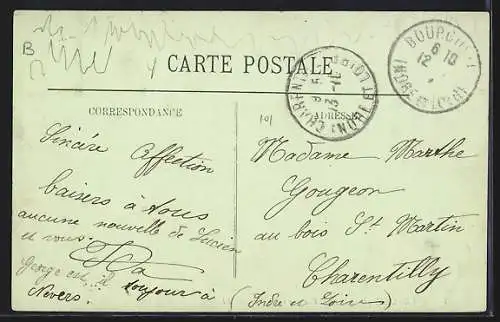 B
CARTE POSTALE
CORRESPONDANCE
ADRESSE
BOURG
6 10
12
(INDRE ET LOIRE)
CHARENT
INDRE ET LOIRE
101
Sincère Affection
baisers à tous
aucune nouvelle de Lucien
et vous.
George est il toujour à
Nevers.
Madame Marthe
Gougeon
au bois St Martin
Charentilly
(Indre et Loire)